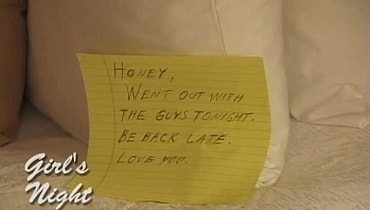 HONEY,
WENT OUT WITH
THE GUYS TONIGHT.
BE BACK LATE.
LOVE YOU.
Girl's
Night